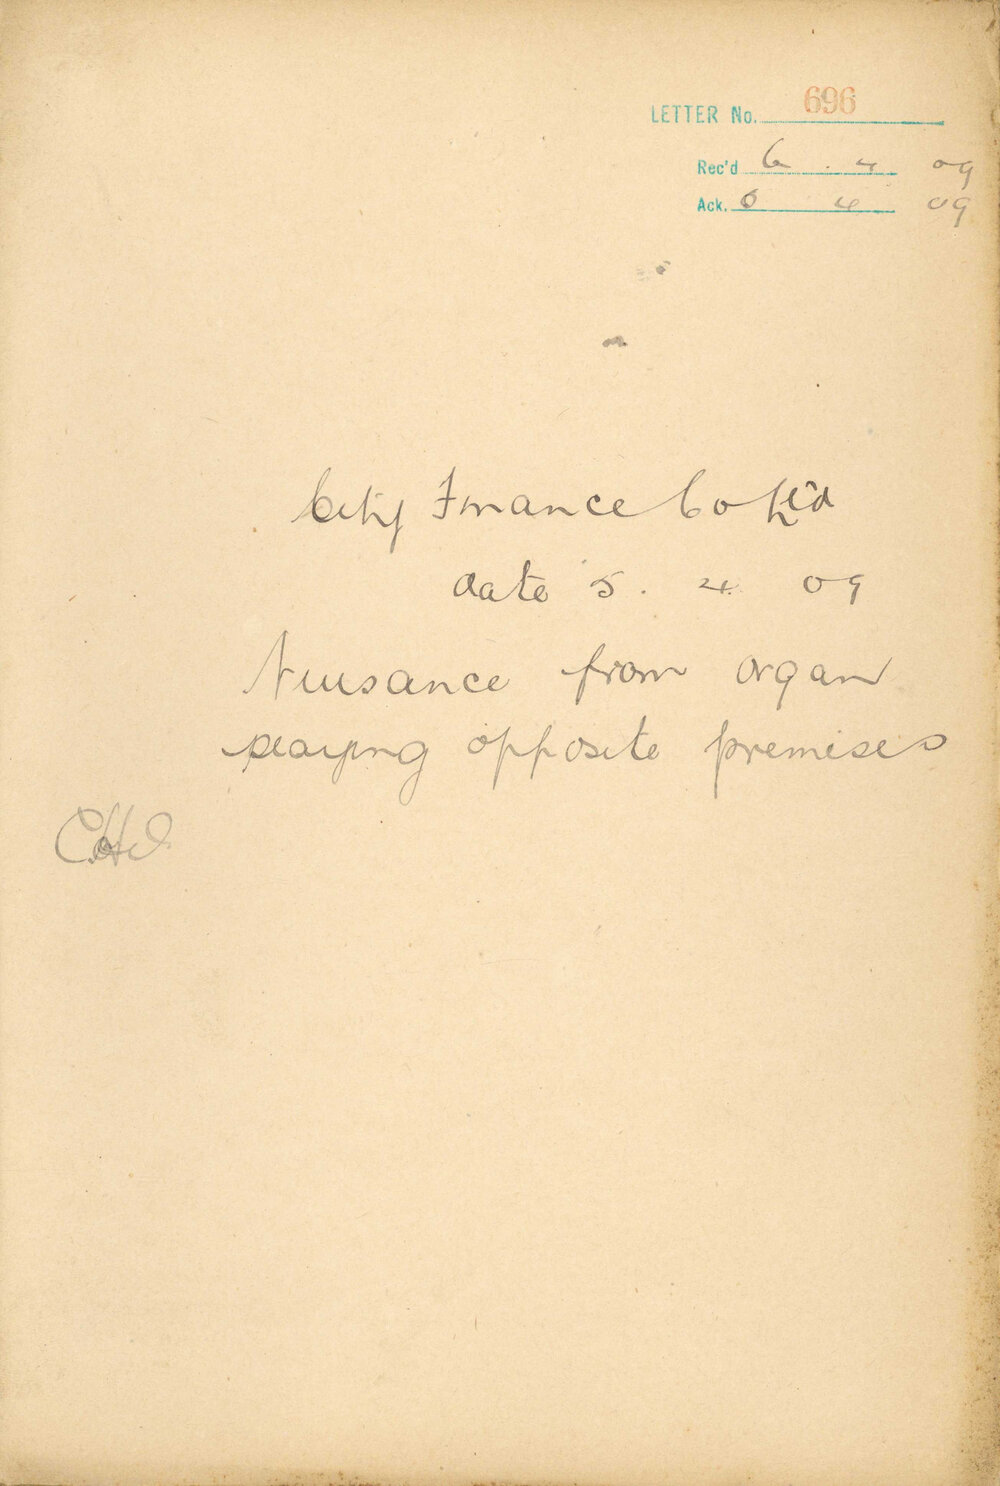 LETTER No. 696
Rec'd 6 . 4 09
Ack. 6 4 09
City Finance Co Ltd
date 5. 4. 09
Nuisance from organ
playing opposite premises